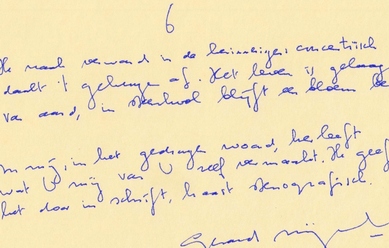 6
Ik raak verward in de
daalt 't geheugen af. Het leven is gelaagd
van aard, in steenkool blijft een bloem be
In mij, in het gedragen woord, herleeft
wat U mij van U zelf vermaakt. Ik geef
het door in schrift, haast stenografisch.
Gerard